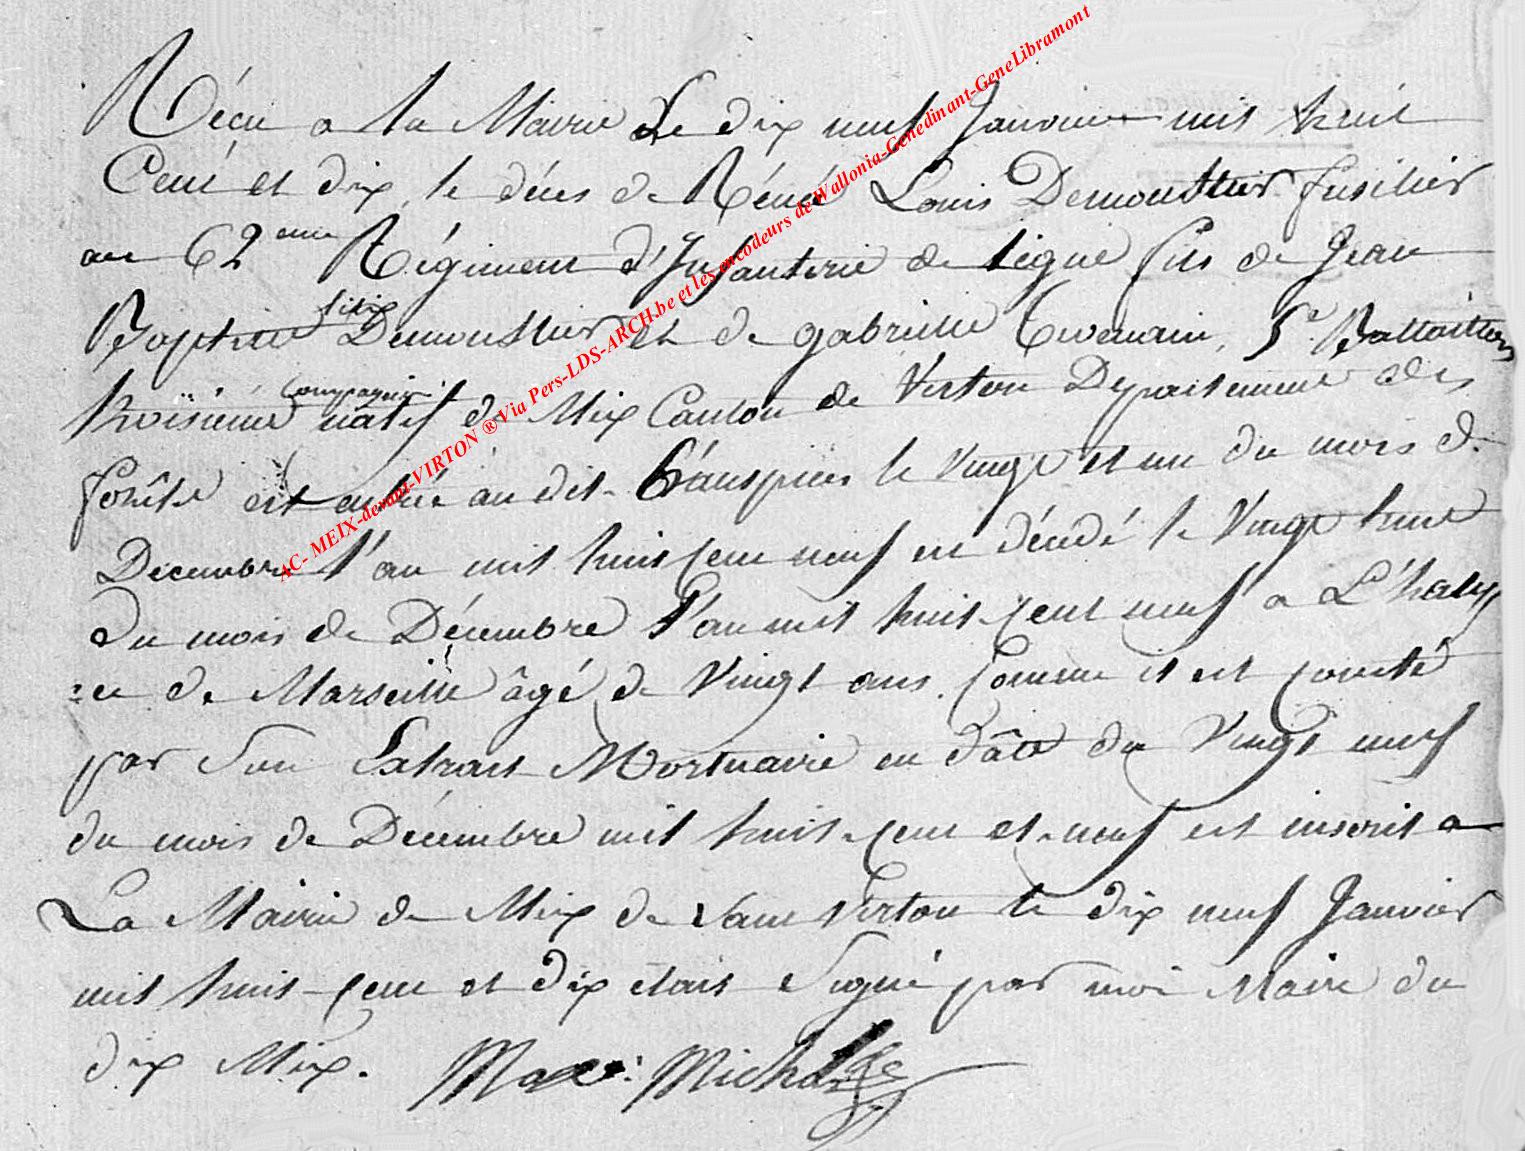 Récu a la Mairie Le dix neuf Janvier mil huit
Cent et dix le déces de Réné Louis Demoustier fusilier
au 62eme Régiment d'Infanterie de Ligne fils de Jean
Baptiste felix Demoustier et de gabrielle 5e Battaillon
troisieme Compagnie natif de Mix Canton de Virton Departement des
forêts est entré au dit le Vingt et un du mois de
Decembre l'an mil huit cent neuf et décédé le Vingt huit
Du mois de Décembre l'an mil huit cent neuf a
de Marseille âgé de Vingt ans. Comme il est
par Son Extrait Mortuaire en dâte du Vingt neuf
du mois de Décembre mil huit cent et neuf est inscrit a
La Mairie de Mix de Vant Virton le dix neuf Janvier
mil huit cent et dix etait Signé par moi Maire du
dix Mix.
AC- MEIX-devant-VIRTON ® Via Pers-LDS-ARCH.be et les encodeurs de Wallonia-Genedinant-GeneLibramont